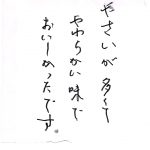 やさいが多くて
やわらかい味で
おいしかったです。